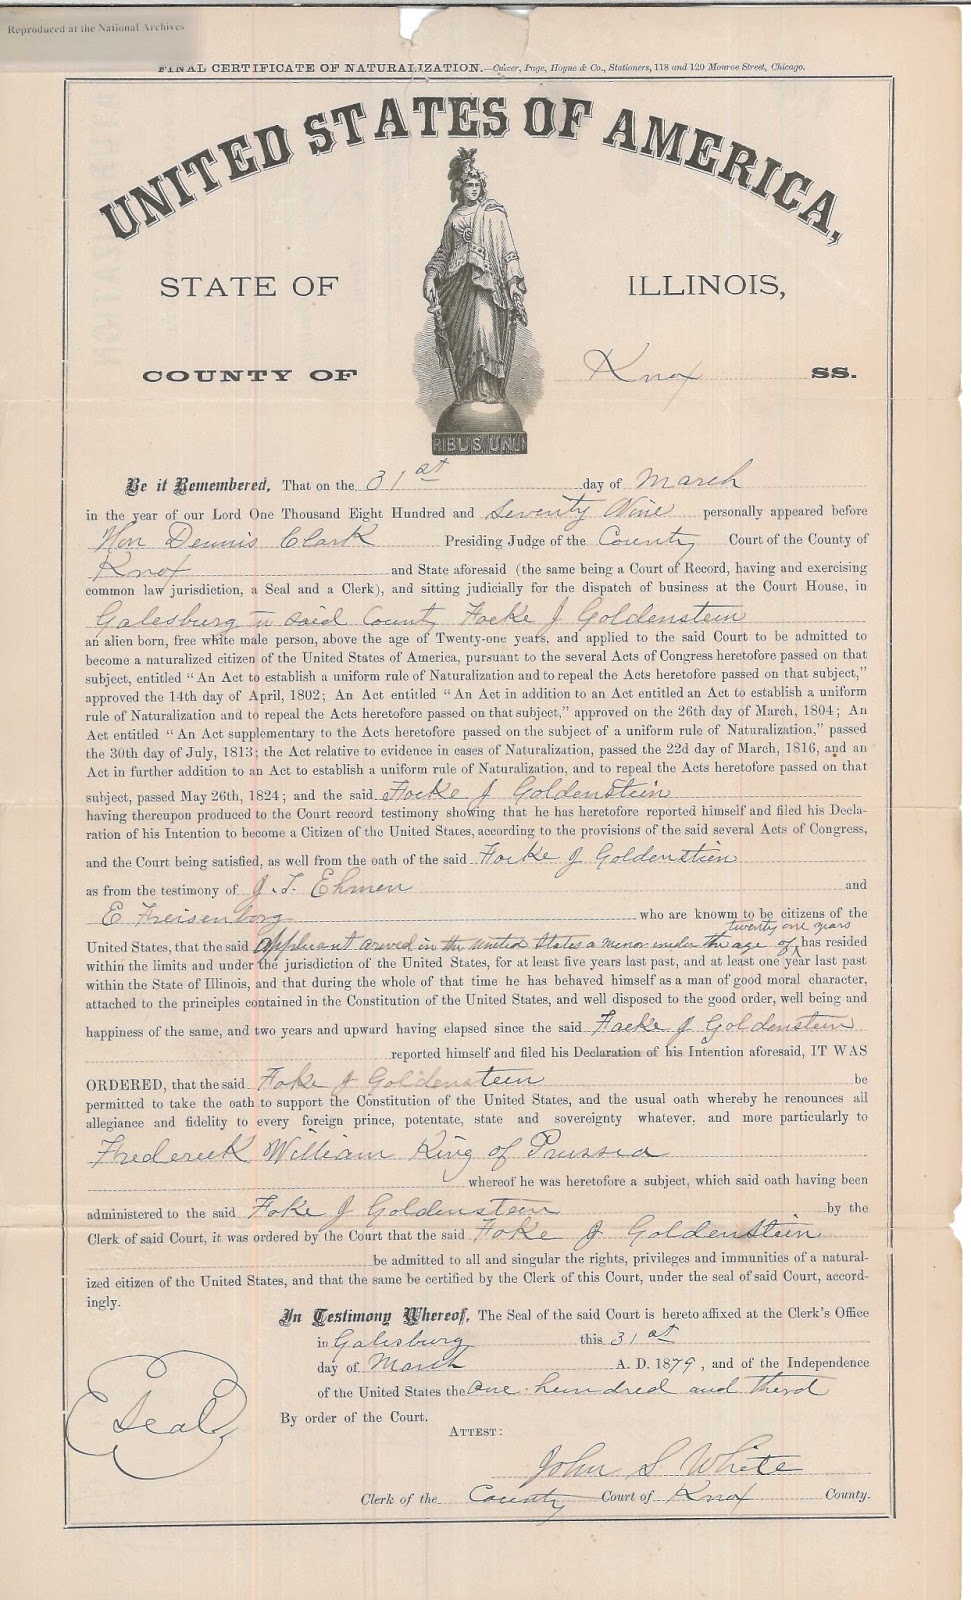 Reproduced at the National Archives
FINAL CERTIFICATE OF NATURALIZATION.—Culver, Page, Hoyne & Co., Stationers, 118 and 120 Monroe Street, Chicago.
UNITED STATES OF AMERICA,
STATE OF ILLINOIS,
COUNTY OF Knox SS.
RIBUS UNU
Be it Remembered, That on the 31st day of March
in the year of our Lord One Thousand Eight Hundred and Seventy Nine personally appeared before
Hon Dennis Clark Presiding Judge of the County Court of the County of
Knox and State aforesaid (the same being a Court of Record, having and exercising
common law jurisdiction, a Seal and a Clerk), and sitting judicially for the dispatch of business at the Court House, in
Galesburg in said County Focke J Goldenstein
an alien born, free white male person, above the age of Twenty-one years, and applied to the said Court to be admitted to
become a naturalized citizen of the United States of America, pursuant to the several Acts of Congress heretofore passed on that
subject, entitled "An Act to establish a uniform rule of Naturalization and to repeal the Acts heretofore passed on that subject,"
approved the 14th day of April, 1802; An Act entitled "An Act in addition to an Act entitled an Act to establish a uniform
rule of Naturalization and to repeal the Acts heretofore passed on that subject," approved on the 26th day of March, 1804; An
Act entitled "An Act supplementary to the Acts heretofore passed on the subject of a uniform rule of Naturalization," passed
the 30th day of July, 1813; the Act relative to evidence in cases of Naturalization, passed the 22d day of March, 1816, and an
Act in further addition to an Act to establish a uniform rule of Naturalization, and to repeal the Acts heretofore passed on that
subject, passed May 26th, 1824; and the said Focke J Goldenstein
having thereupon produced to the Court record testimony showing that he has heretofore reported himself and filed his Decla-
ration of his Intention to become a Citizen of the United States, according to the provisions of the said several Acts of Congress,
and the Court being satisfied, as well from the oath of the said Focke J Goldenstien
as from the testimony of J. T. Ehmen and
E Freisenborg who are known to be citizens of the
twenty one years
United States, that the said applicant arived in the United States a minor under the age of has resided
within the limits and under the jurisdiction of the United States, for at least five years last past, and at least one year last past
within the State of Illinois, and that during the whole of that time he has behaved himself as a man of good moral character,
attached to the principles contained in the Constitution of the United States, and well disposed to the good order, well being and
happiness of the same, and two years and upward having elapsed since the said Focke J Goldenstein
reported himself and filed his Declaration of his Intention aforesaid, IT WAS
ORDERED, that the said Foke J Goldensteen be
permitted to take the oath to support the Constitution of the United States, and the usual oath whereby he renounces all
allegiance and fidelity to every foreign prince, potentate, state and sovereignty whatever, and more particularly to
Frederick William King of Prussia
whereof he was heretofore a subject, which said oath having been
administered to the said Foke J Goldenstein by the
Clerk of said Court, it was ordered by the Court that the said Foke J Goldenstein
be admitted to all and singular the rights, privileges and immunities of a natural-
ized citizen of the United States, and that the same be certified by the Clerk of this Court, under the seal of said Court, accord-
ingly.
In Testimony Whereof, The Seal of the said Court is hereto affixed at the Clerk's Office
in Galesburg this 31st
day of March A. D. 1879, and of the Independence
of the United States the one hundred and third
Seal
By order of the Court.
ATTEST:
John S White
Clerk of the County Court of Knox County.